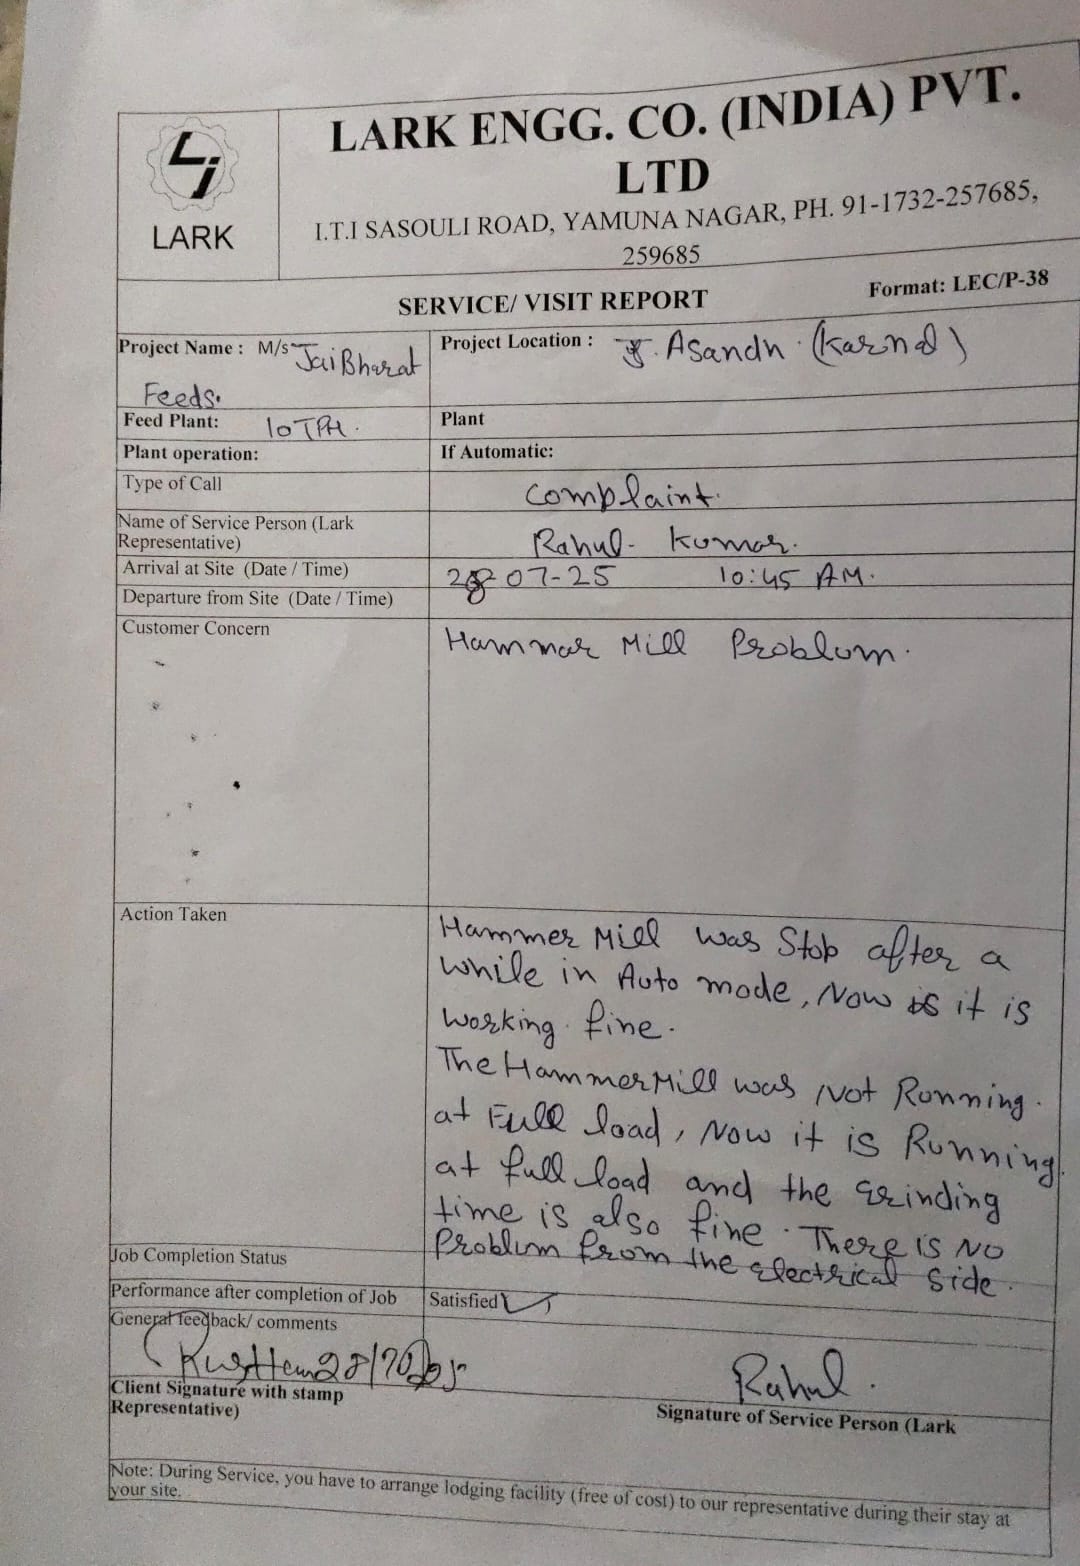 LARK
LARK ENGG. CO. (INDIA) PVT.
LTD
I.T.I SASOULI ROAD, YAMUNA NAGAR, PH. 91-1732-257685,
259685
SERVICE/ VISIT REPORT
Format: LEC/P-38
Project Name : M/s Jai Bharat
Feeds.
Project Location : Asandh (Karnal)
Feed Plant: 10 TPH.
Plant
Plant operation:
If Automatic:
Type of Call
Complaint.
Name of Service Person (Lark
Representative)
Rahul Kumar.
Arrival at Site (Date / Time)
28 07-25 10:45 AM.
Departure from Site (Date / Time)
Customer Concern
Hammar Mill Problum.
Action Taken
Hammer Mill was Stop after a
while in Auto mode, Now it is
working fine.
The Hammer Mill was Not Running.
at Full load, Now it is Running
at full load and the Grinding
time is also fine. There is NO
Problum from the electrical side.
Job Completion Status
Performance after completion of Job
Satisfied
General feedback/ comments
Client Signature with stamp
Representative)
Rahul.
Signature of Service Person (Lark
Note: During Service, you have to arrange lodging facility (free of cost) to our representative during their stay at
your site.